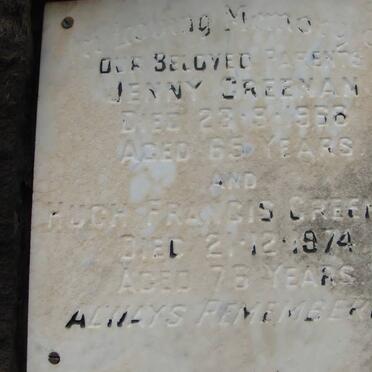 In Loving Memory
OUR BELOVED PARENTS
JENNY GREENAN
DIED
AGED 65 YEARS
AND
HUGH FRANCIS GREEN
DIED 21·12·1974
AGED 78 YEARS
ALWAYS REMEMBER